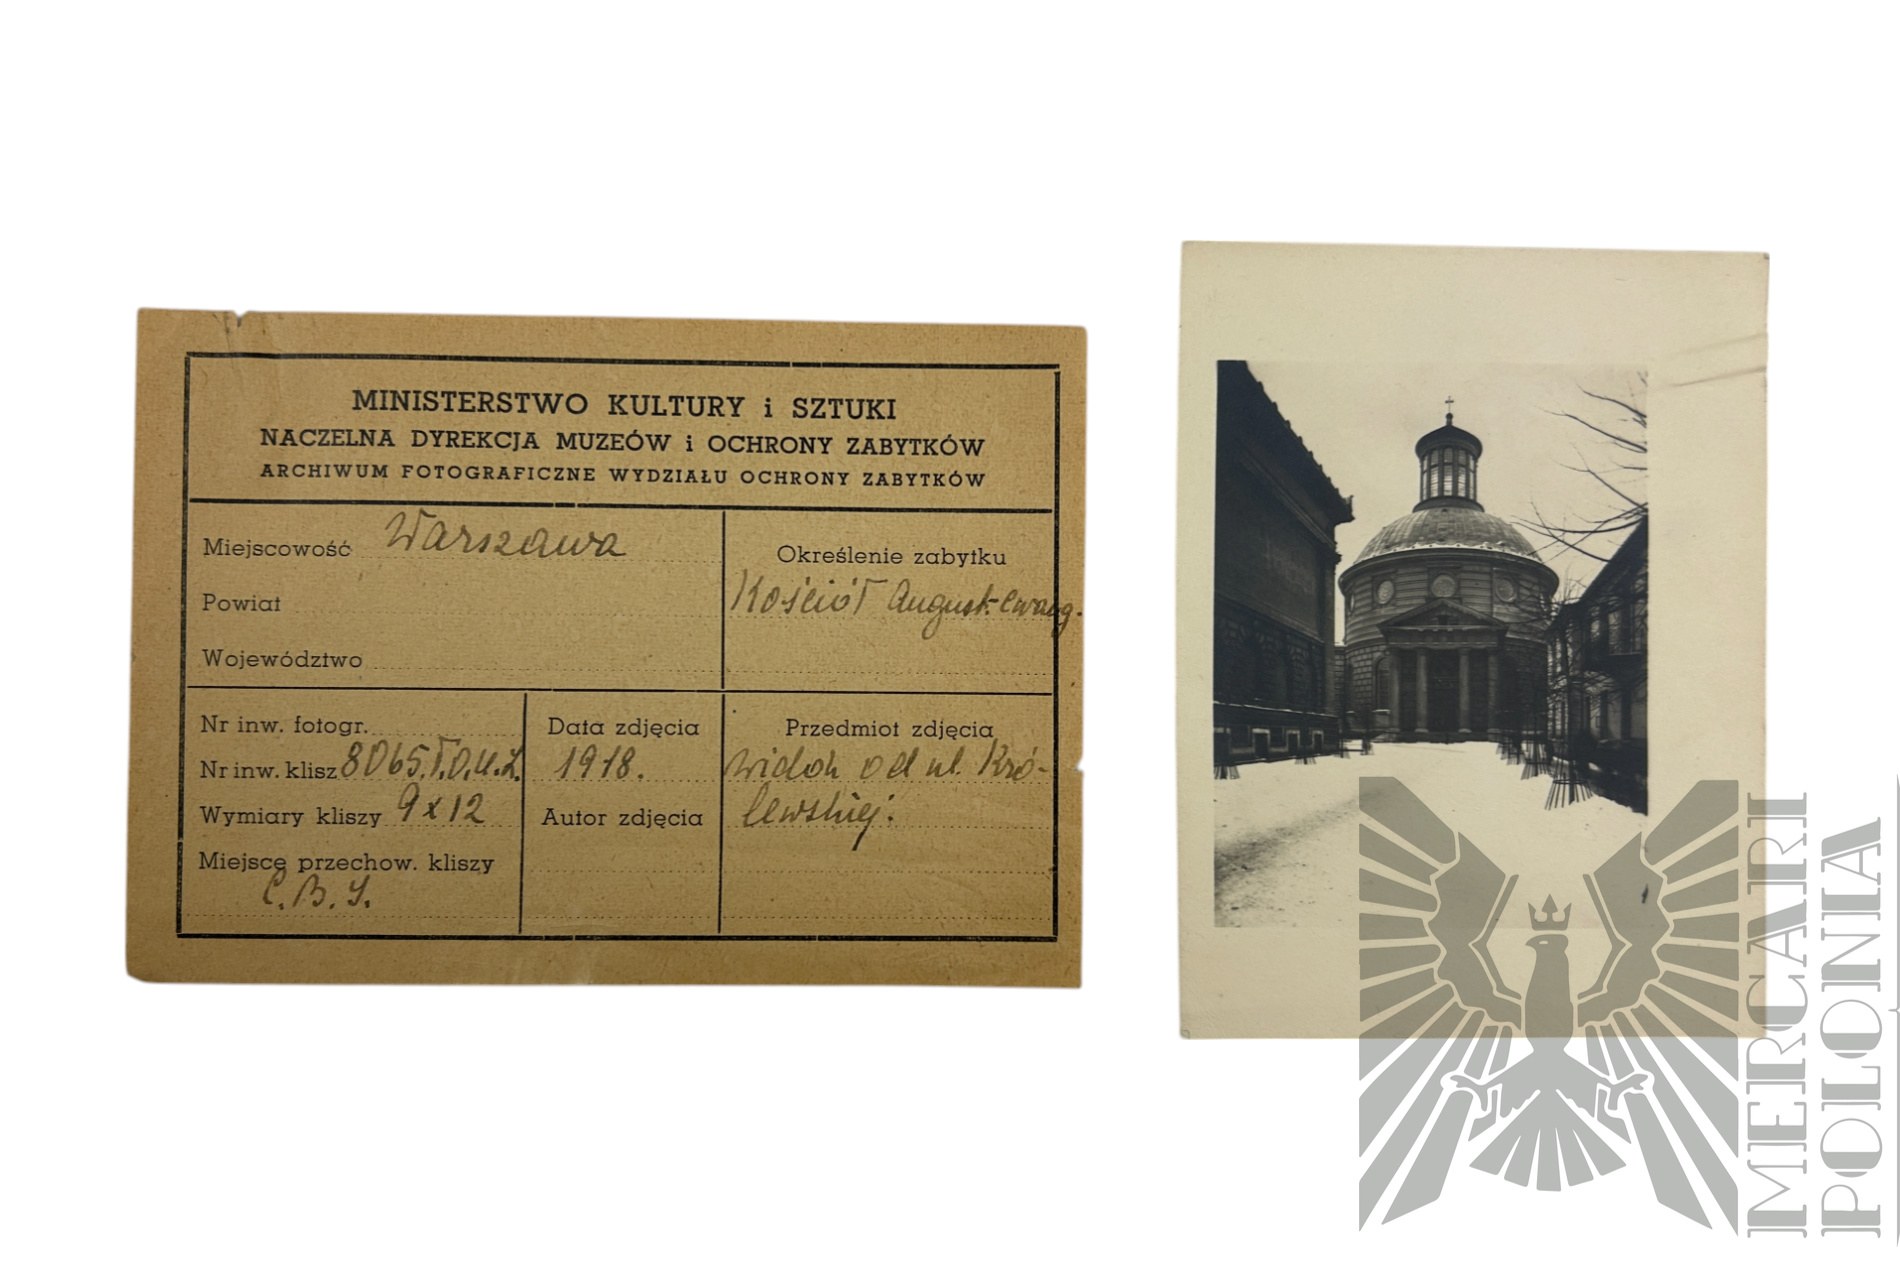 MINISTERSTWO KULTURY i SZTUKI
NACZELNA DYREKCJA MUZEÓW i OCHRONY ZABYTKÓW
ARCHIWUM FOTOGRAFICZNE WYDZIAŁU OCHRONY ZABYTKÓW
Miejscowość Warszawa
Powiat
Województwo
Określenie zabytku
Kościół August-ewang.
Nr inw. fotogr.
Nr inw. klisz 8065.T.O.n.Z.
Wymiary kliszy 9x12
Miejsce przechow. kliszy
C.B.I.
Data zdjęcia
1918.
Autor zdjęcia
Przedmiot zdjęcia
widok od ul. Kró-
lewskiej.
MERCARI
POLONIA